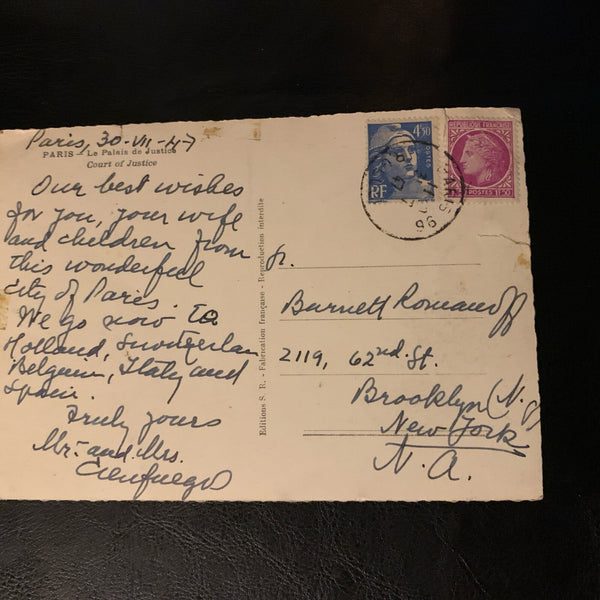 Paris, 30-VII-47
PARIS - Le Palais de Justice
Court of Justice
Our best wishes
for you, your wife
and children from
this wonderful
City of Paris.
We go now to
Holland, Switzerlan
Belgium, Italy and
Spain.
Truly yours
Mr. and Mrs.
Cienfuegos
Editions S. R. - Fabrication française - Reproduction interdite
4F50
POSTES
RF
REPUBLIQUE FRANÇAISE
POSTES 1F50
PARIS
Sr.
Barnett Romanoff
2119, 62nd. St.
Brooklyn (N.y
New York
N.A.